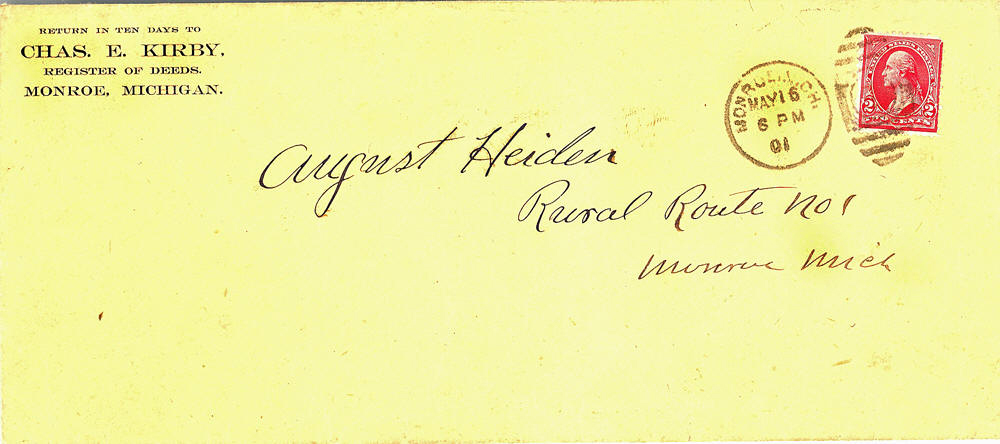 RETURN IN TEN DAYS TO
CHAS. E. KIRBY,
REGISTER OF DEEDS.
MONROE, MICHIGAN.
MONROE, MICH.
MAY 16
6 PM
01
UNITED STATES POSTAGE
2 2
TWO CENTS
August Heiden
Rural Route No 1
Monroe Mich